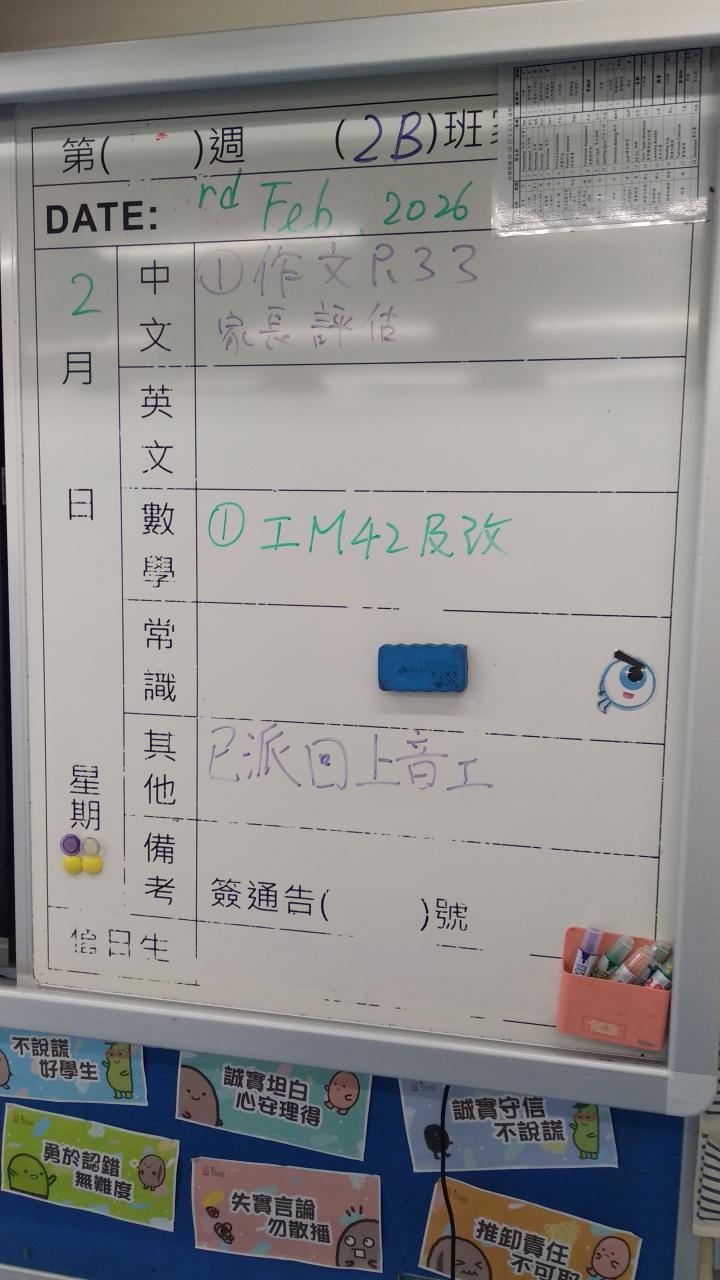 第( )週 (2B)班
DATE: rd Feb 2026
2月 日 星期
中文
①作文P.33
家長評估
英文
數學
①工M42及改
常識
其他
已派回上音工
備考
簽通告( )號
值日生
不說謊
好學生
誠實坦白
心安理得
誠實守信
不說謊
勇於認錯
無難度
失實言論
勿散播
推卸責任
不可取